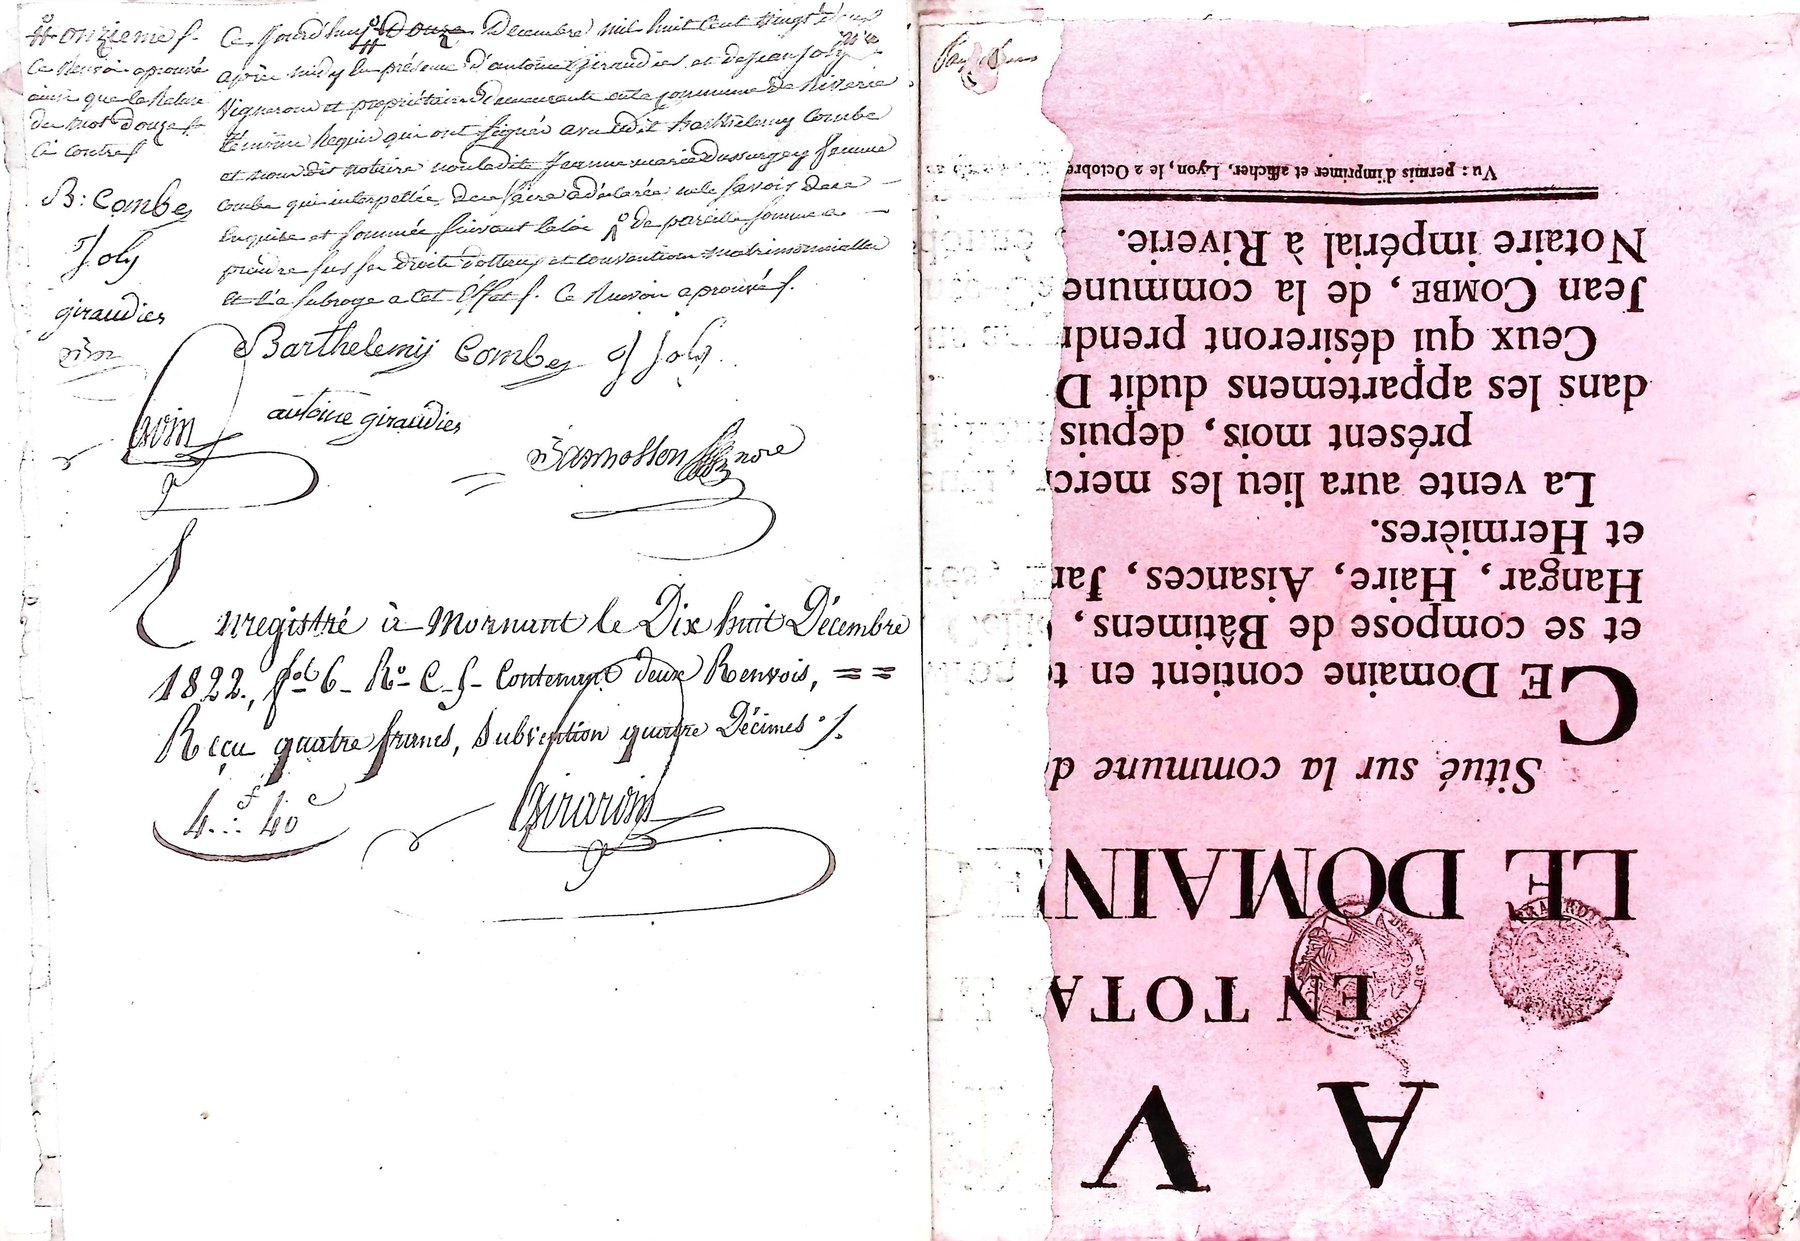 onzieme f.
Ce Renvoi aprouvé
ainsi que la Rature
du mot douze f
Ci contre f
B: Combe
J Joly
giraudier
Ce jourd'huy Douze Decembre mil huit Cent vingt deux
après midy en présence d'antoine giraudier et de jean Joly
Vigneron et propriétaire demeurants en la Commune de Riverie
témoins Requis qui ont signés avec ledit Barthelemy Combe
et nous dit notaire non ladite Jeanne marie Dussurgey femme
Combe qui interpellée de ce faire a déclarée ne le savoir de ce
Enquise et sommée suivant la loi de pareille somme a
prendre sus ses droits dotteux et convention matrimonialles
Et l'a subrogé a Cet Effet f. Ce Renvoi aprouvé f.
Barthelemy Combe J Joly
antoine giraudier
nore
Enregistré à Mornant le Dix huit Décembre
1822, fol 6 Ro C. f. Contenant deux Renvois, ==
Reçu quatre francs, Subvention quatre Décimes ./.
4 f 40 c
Girardin
A V
EN TOTA
LE DOMAIN
Situé sur la commune d
CE Domaine contient en t
et se compose de Bâtimens,
Hangar, Haire, Aisances, Jar
et Hermières.
La vente aura lieu les mercr
présent mois, depuis
dans les appartemens dudit D
Ceux qui désireront prendr
Jean COMBE, de la commune
Notaire impérial à Riverie.
Vu : permis d'imprimer et afficher, Lyon, le 2 Octobre